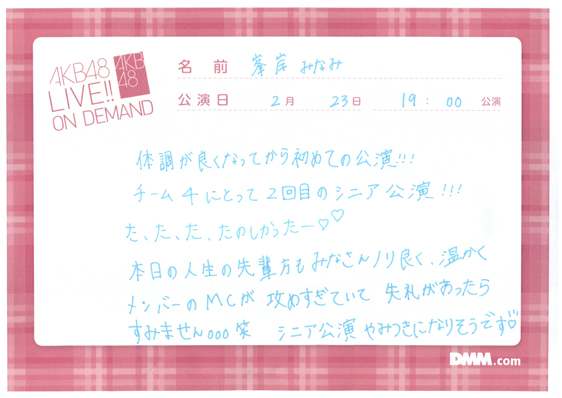 AKB48
LIVE!!
ON DEMAND
AKB
48
名 前 峯岸 みなみ
公演日 2月 23日 19:00 公演
体調が良くなってから初めての公演!!!
チーム4にとって2回目のシニア公演!!!
た、た、た、たのしかったー♡♡
本日の人生の先輩方もみなさんノリ良く、温かく
メンバーのMCが攻めすぎていて 失礼があったら
すみません。。。笑 シニア公演 やみつきになりそうです♡
DMM.com